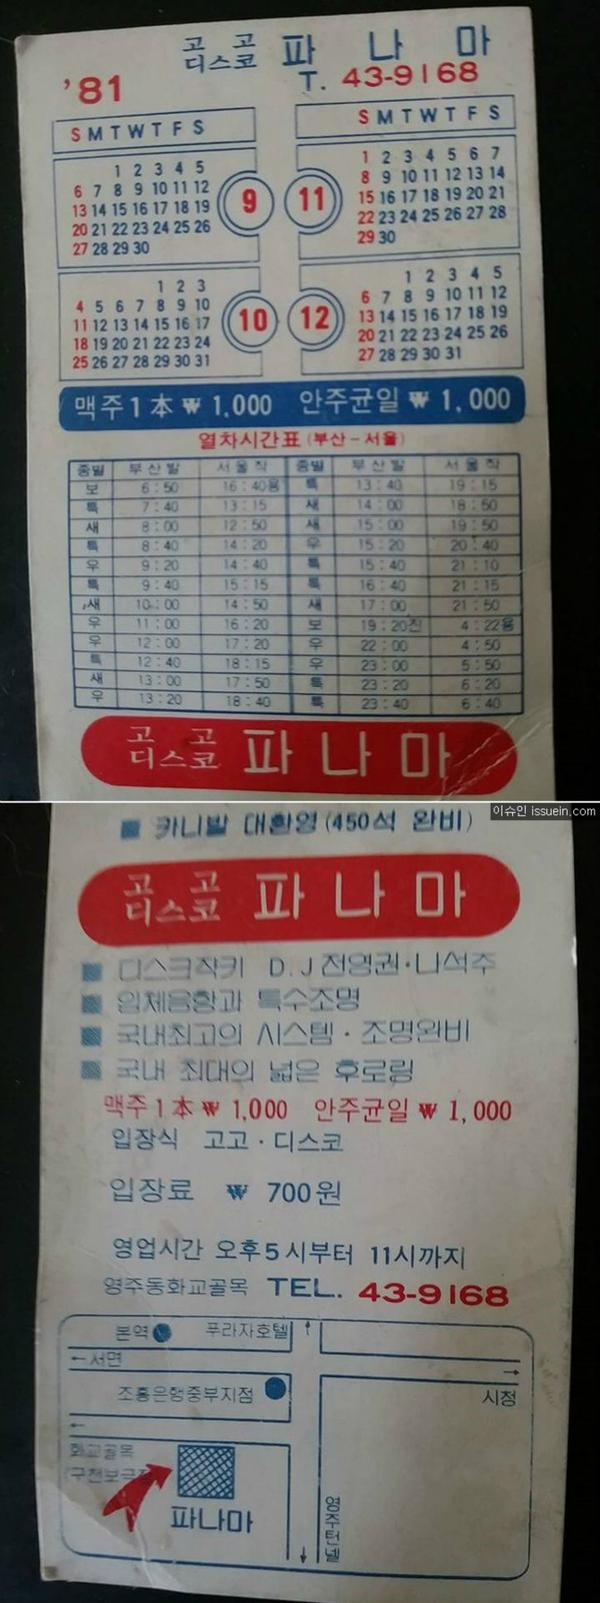 고고
디스코 파나마
'81 T. 43-9168
S M T W T F S
S M T W T F S
1 2 3 4 5
6 7 8 9 10 11 12
13 14 15 16 17 18 19
20 21 22 23 24 25 26
27 28 29 30
9
11
1 2 3 4 5 6 7
8 9 10 11 12 13 14
15 16 17 18 19 20 21
22 23 24 25 26 27 28
29 30
1 2 3
4 5 6 7 8 9 10
11 12 13 14 15 16 17
18 19 20 21 22 23 24
25 26 27 28 29 30 31
10
12
1 2 3 4 5
6 7 8 9 10 11 12
13 14 15 16 17 18 19
20 21 22 23 24 25 26
27 28 29 30 31
맥주 1本 ₩ 1,000 안주균일 ₩ 1,000
열차시간표 (부산 - 서울)
종별 부산발 서울착 종별 부산발 서울착
보 6:50 16:40용 특 13:40 19:15
특 7:40 13:15 새 14:00 18:50
새 8:00 12:50 새 15:00 19:50
특 8:40 14:20 우 15:20 20:40
우 9:20 14:40 특 15:40 21:10
특 9:40 15:15 특 16:40 21:15
새 10:00 14:50 새 17:00 21:50
우 11:00 16:20 보 19:20진 4:22용
우 12:00 17:20 우 22:00 4:50
특 12:40 18:15 우 23:00 5:50
새 13:00 17:50 특 23:20 6:20
우 13:20 18:40 특 23:40 6:40
고고
디스코 파나마
이슈인 issuein.com
카니발 대환영 (450석 완비)
고고
디스코 파나마
디스크쟈키 D.J 전영권·나석주
입체음향과 특수조명
국내최고의 시스템 · 조명완비
국내 최대의 넓은 후로링
맥주 1本 ₩ 1,000 안주균일 ₩ 1,000
입장식 고고 · 디스코
입장료 ₩ 700원
영업시간 오후 5시부터 11시까지
영주동화교골목 TEL. 43-9168
본역 푸라자호텔
←서면
시청
조흥은행중부지점
화교골목
파나마
영주턴넬